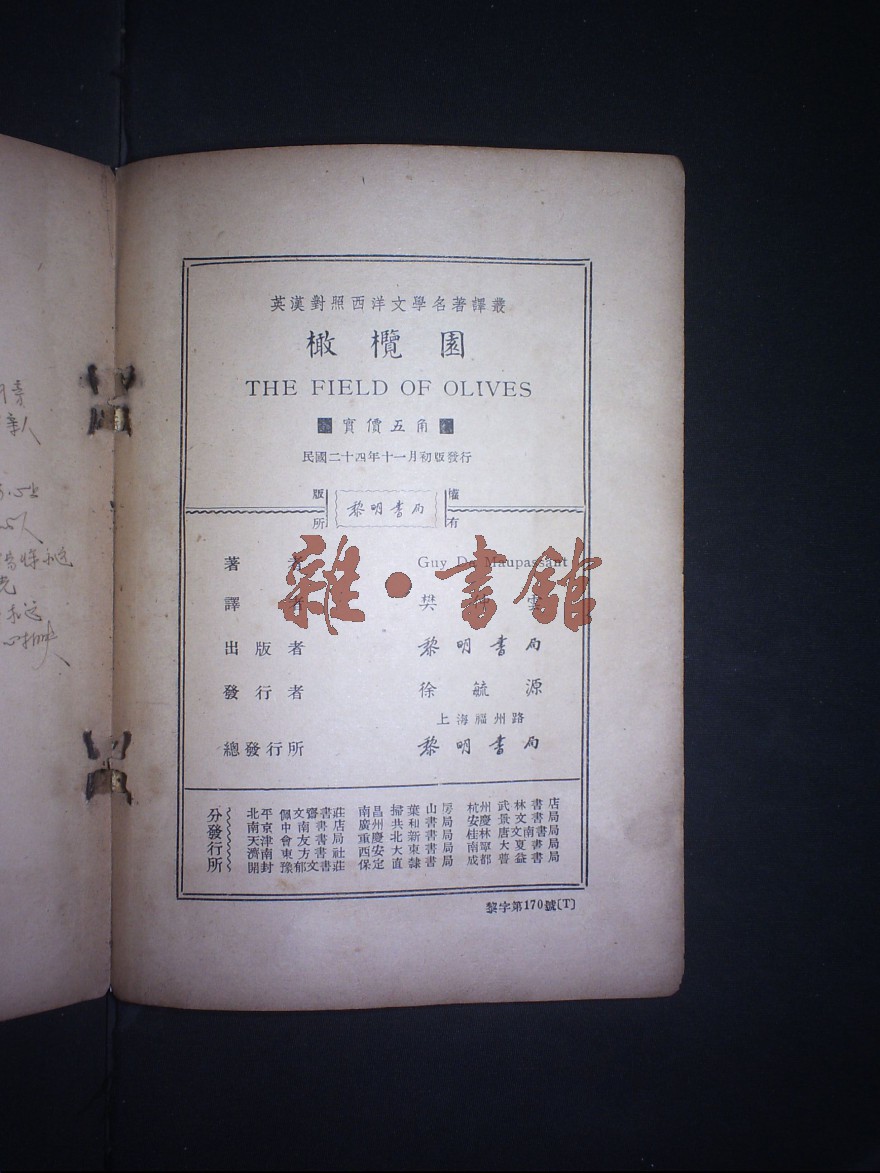 英漢對照西洋文學名著譯叢
橄欖園
THE FIELD OF OLIVES
實價五角
民國二十四年十一月初版發行
版權
黎明書局
所有
著者 Guy De Maupassant
譯者 樊仲雲
雜·書館
出版者 黎明書局
發行者 徐毓源
上海福州路
總發行所 黎明書局
分發行所
北平佩文齋書莊 南昌掃葉山房 杭州武林書店
南京中南書店 廣州共和書局 安慶景文書局
天津會友書局 重慶北新書局 桂林唐文南書局
濟南東方書社 西安大東書局 南寧大夏書局
開封豫郁文書莊 保定直隸書局 成都普益書局
黎字第170號〔T〕